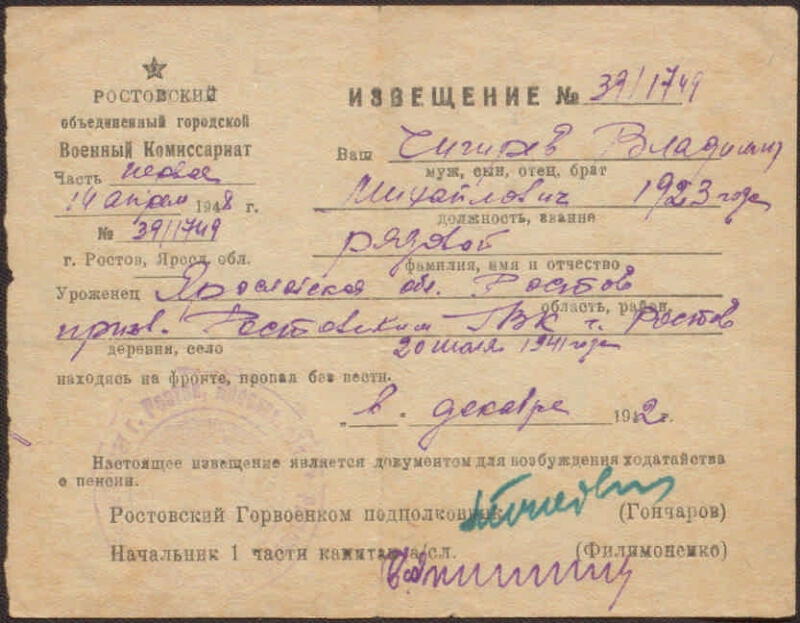 РОСТОВСКИЙ
объединенный городской
Военный Комиссариат
Часть первая
14 апреля 1948 г.
№ 39/1749
г. Ростов, Яросл. обл.
ИЗВЕЩЕНИЕ № 39/1749
Ваш Чигирев Владимир
муж, сын, отец, брат
Михайлович 1923 года
должность, звание
рядовой
фамилия, имя и отчество
Уроженец Ярославская обл. Ростов
область, район,
призв. Ростовским ГВК г. Ростов
деревня, село
20 июля 1941 года
находясь на фронте, пропал без вести.
„в" декабре 1942г.
Настоящее извещение является документом для возбуждения ходатайства
о пенсии.
Ростовский Горвоенком подполковник (Гончаров)
Начальник 1 части капитан а/сл. (Филимоненко)